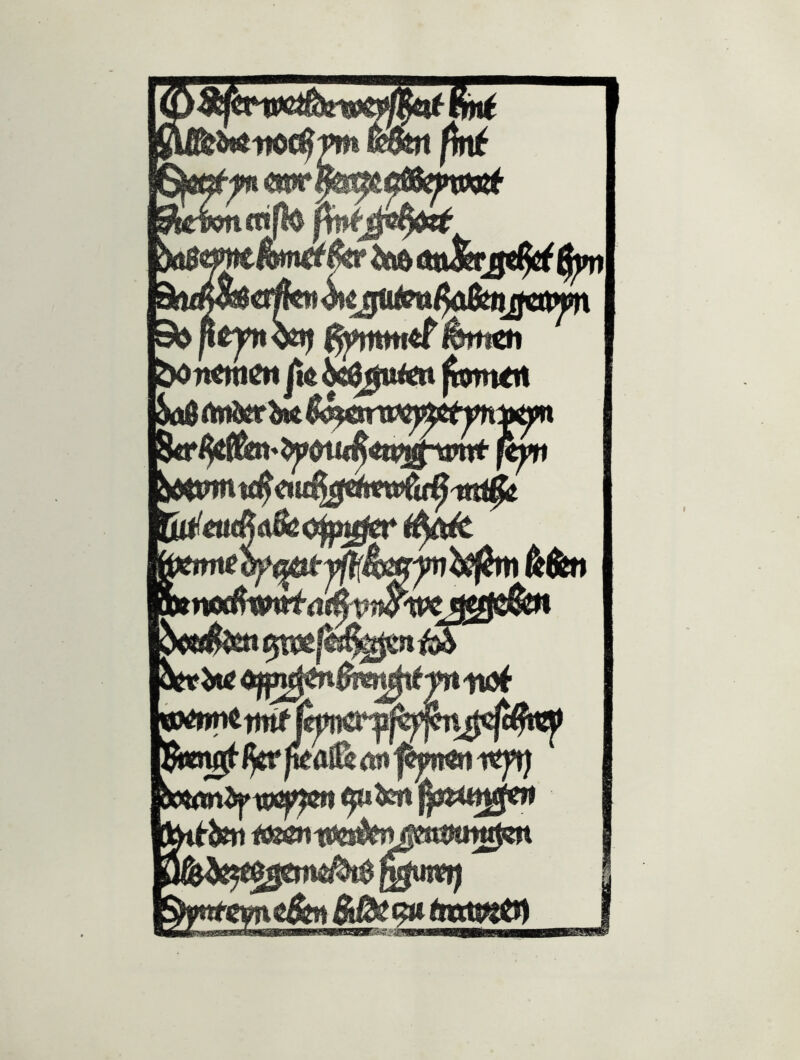 O Diser werlde weysheit kint
Alle die noch ym leben sint
Setzt yn ewr hertze czwey wort
Die von cristo sint gehort
das eyne komet her das ander gehet hyn
Durch das ersten die guten haben gewyn
So sie yn den hymmel komen
do nemen sie des guten fromen
das ander die bozen weyzet yn peyn
Der hellen dy ouch ewig wirt seyn
dorvm ich euch getrewlich
Tut euch abe oppiger
wenne dy czeit yst yn desem leben
noch wirt ach vnd we gegeben
den czwefechtigen tod
der die oppigen brenght yn not
wenne mit seyner pfeyfen geschrey
Brengt her sie alle an seynen reyn
doran dy weyzen czu den sprungen
Mit den toren werden gewungen
Als dezes gemeldis figuren
Synt eyn eben bilde czu